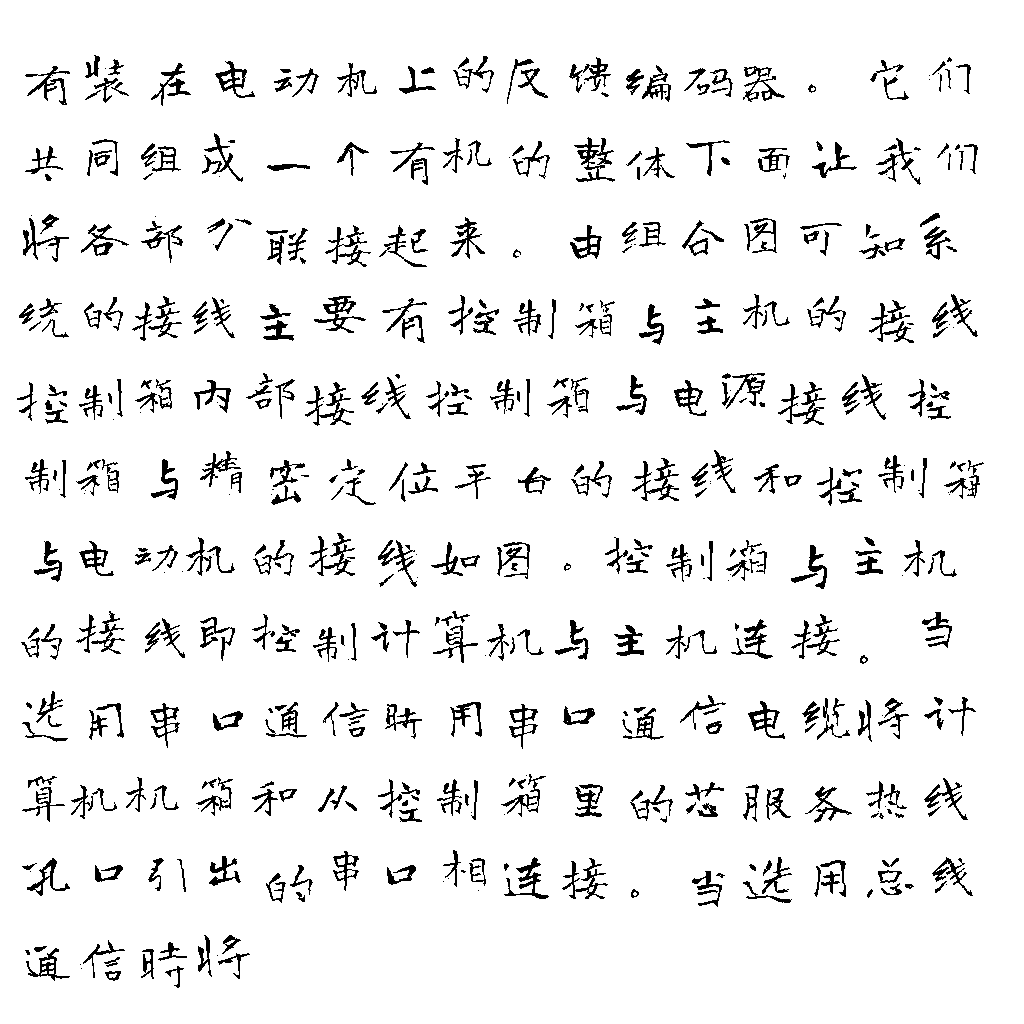 有装在电动机上的反馈编码器。它们
共同组成一个有机的整体下面让我们
将各部分联接起来。由组合图可知系
统的接线主要有控制箱与主机的接线
控制箱内部接线控制箱与电源接线控
制箱与精密定位平台的接线和控制箱
与电动机的接线如图。控制箱与主机
的接线即控制计算机与主机连接。当
选用串口通信时用串口通信电缆将计
算机机箱和从控制箱里的芯服务热线
孔口引出的串口相连接。当选用总线
通信時将